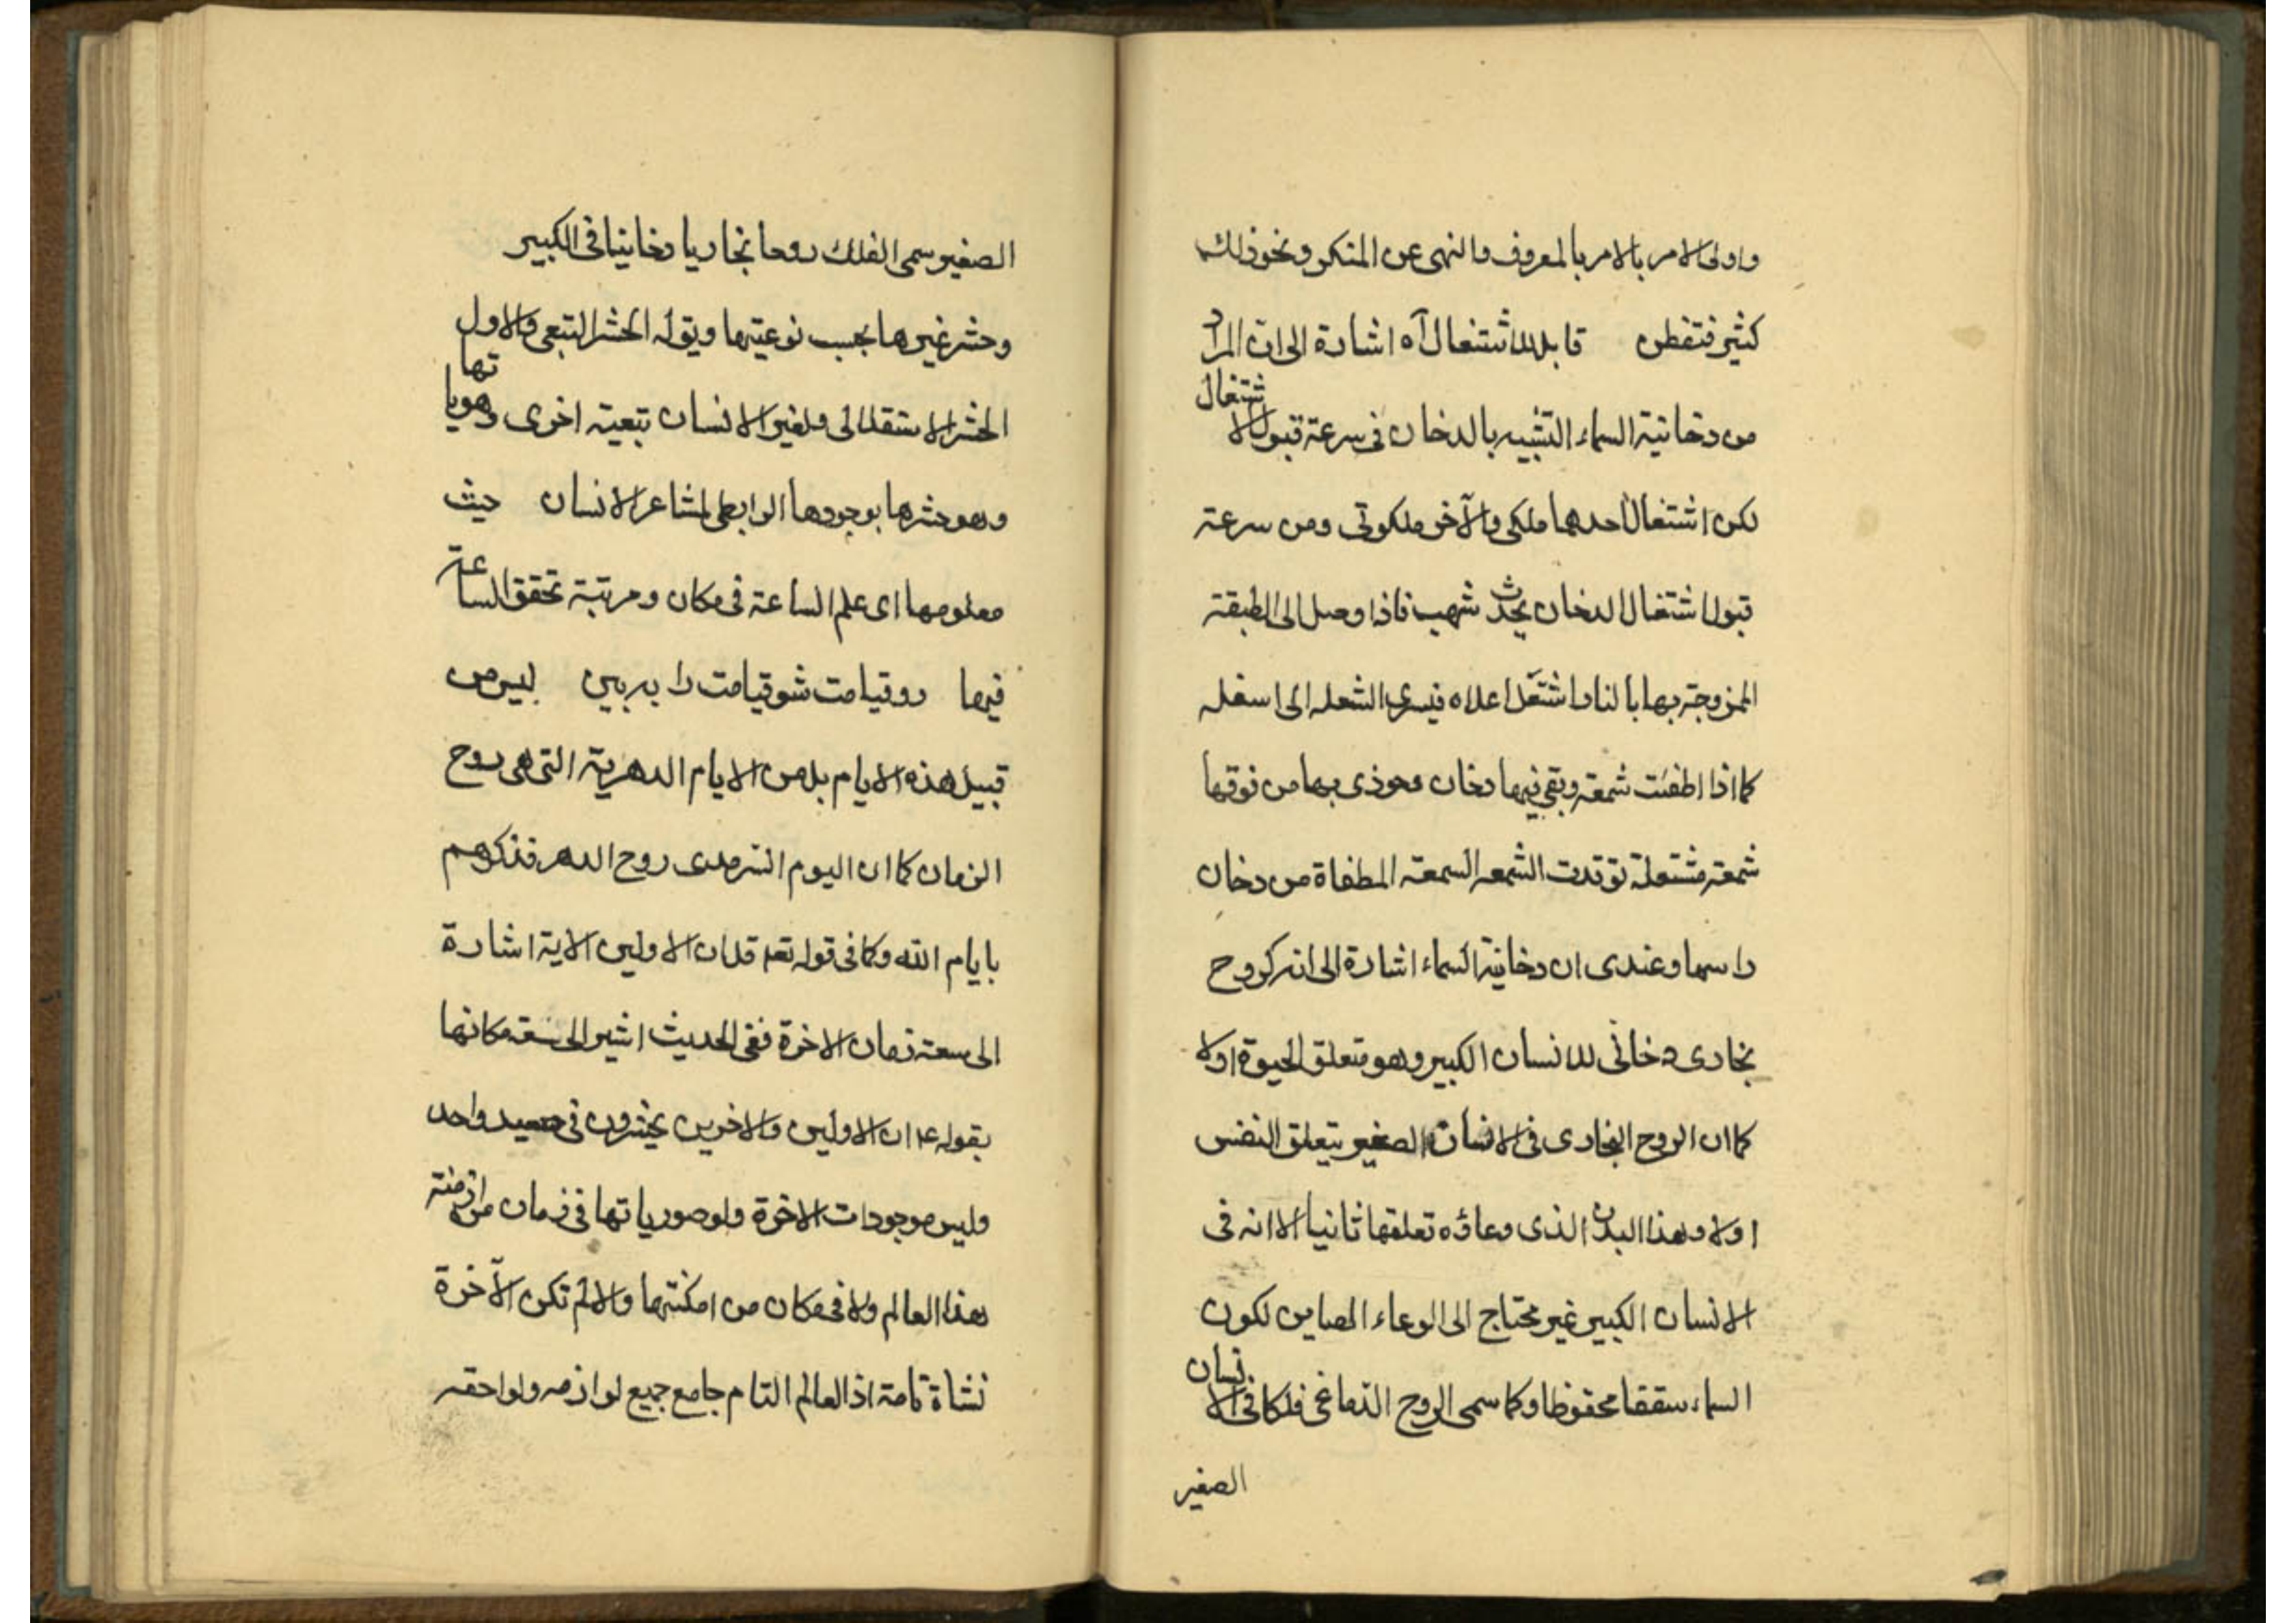 واولی الامر بالامر بالمعروف والنهی عن المنکر ونحو ذلک
کثیر فتفطن قابل للاشتعال آه اشارة الی ان المراد
من دخانیة السماء التشبیه بالدخان فی سرعة قبول الاشتعال
لکن اشتعال احدهما ملکی والآخر ملکوتی ومن سرعة
قبول اشتعال الدخان یحدث شهب فاذا وصل الی الطبقة
الممزوجة بها بالنار اشتعل اعلاه فیسری الشعله الی اسفله
کما اذا اطفئت شمعة وبقی فیها دخان وحوذی بها من فوقها
شمعة مشتعلة توقدت الشمعه السمعه المطفاة من دخان
راسها وعندی ان دخانیة السماء اشارة الی انه کروح
بخاری دخانی للانسان الکبیر وهو متعلق الحیوة اولا
کما ان الروح البخاری فی الانسان الصغیر یتعلق النفس
اولا وهذا البدن الذی وعاؤه تعلقها ثانیا الا انه فی
الانسان الکبیر غیر محتاج الی الوعاء الصاین لکون
السماء سقفا محفوظا وکما سمی الروح الدماغی فلکا فی الانسان
الصغیر
الصغیر سمی الفلک روحا بخاریا دخانیا فی الکبیر
وحشر غیرها بحسب نوعیتها ویقوله الحشر التبعی والاول
الحشر الاستقلالی ولغیر الانسان تبعیته اخری وهویاتها
وهو حشرها بوجودها الرابطی لمشاعر الانسان حیث
معلومها ای علم الساعة فی مکان ومرتبة تحقق الساعة
فیها رو قیامت شو قیامت را به بین لیس من
قبیل هذه الایام بل من الایام الدهریة التی هی روح
الزمان کما ان الیوم السرمدی روح الدهر فذکرهم
بایام الله وکما فی قوله تعه قل ان الاولین الایة اشارة
الی سعة زمان الاخرة ففی الحدیث اشیر الی سعة مکانها
بقوله ع ان الاولین والاخرین یحشرون فی صعید واحد
ولیس موجودات الاخرة ولو صوریاتها فی زمان من ازمنة
هذا العالم ولا فی مکان من امکنتها والا لم تکن الآخرة
نشاة تامة اذ العالم التام جامع جمیع لوازمه ولواحقه